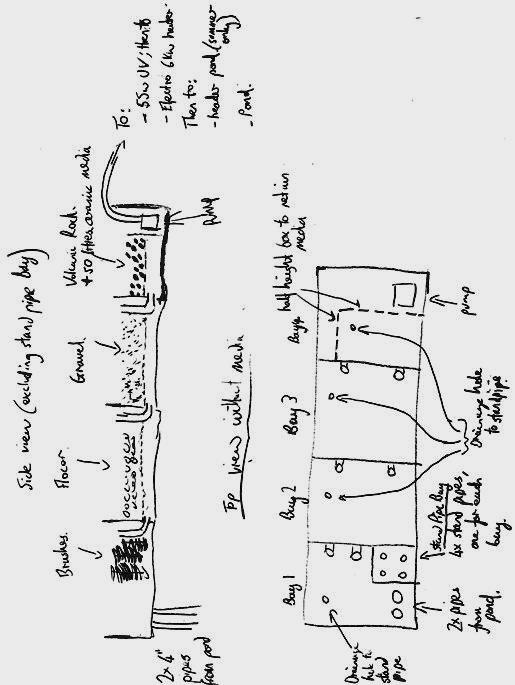 Side view (excluding stand pipe bay)
Brushes
Flocor
Gravel
Volcanic Rock
+ 50 litres ceramic media
To:
- 55w UV; then to
- Electro 6kw heater
Then to:
- header pond (summer
only)
- Pond.
2x 4"
pipes
from pond
pump
Top view without media
half height box to retain
media
Bay 1
Bay 2
Bay 3
Bay 4
pump
Drainage
hole to
stand
pipe
2x pipes
from pond.
Stand Pipe Bay
4x stand pipes,
one for each
bay.
Drainage hole
to standpipe